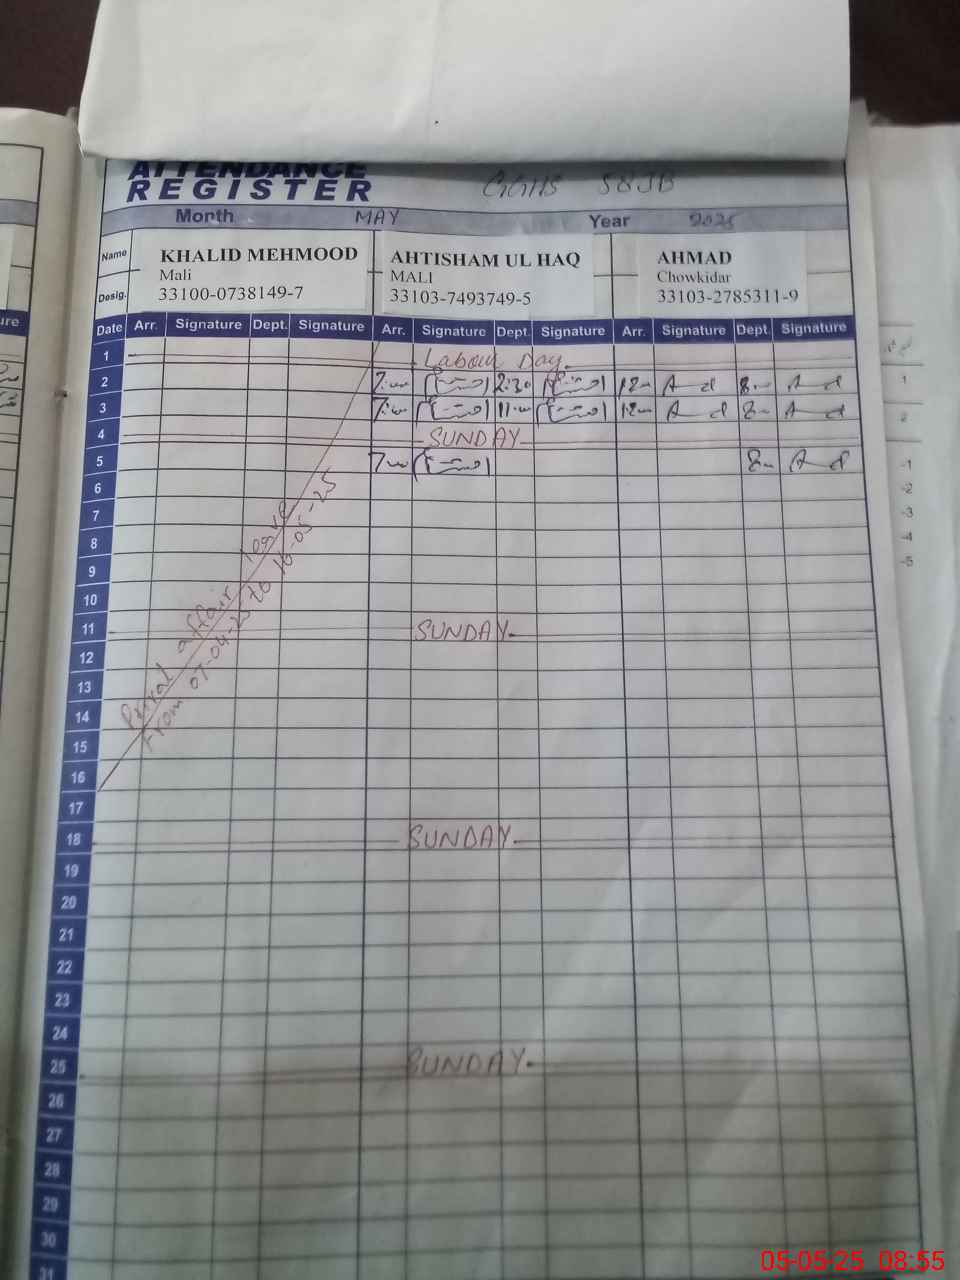 ATTENDANCE
REGISTER
GGHS 58JB
Month MAY Year 2025
Name KHALID MEHMOOD AHTISHAM UL HAQ AHMAD
Mali MALI Chowkidar
Desig. 33100-0738149-7 33103-7493749-5 33103-2785311-9
Date Arr. Signature Dept. Signature Arr. Signature Dept. Signature Arr. Signature Dept. Signature
1 Labour Day
2 7:00 2:30 12:00 8:00
3 7:00 11:00 12:00 8:00
4 SUNDAY
5 7:00 8:00
6
7
8
9
10
11 SUNDAY
12
13
14
15
16
affair leave
From 07-04-25 to 16-05-25
17
18 SUNDAY
19
20
21
22
23
24
25 SUNDAY
26
27
28
29
30
31
05-05-25 08:55